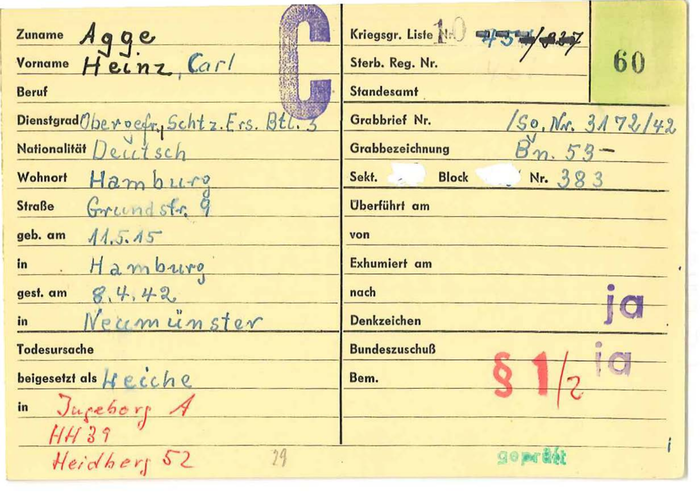 Zuname Agge
Vorname Heinz, Carl
Beruf
Dienstgrad Obergefr., Schtz. Ers. Btl. 3
Nationalität Deutsch
Wohnort Hamburg
Straße Grundstr. 9
geb. am 11.5.15
in Hamburg
gest. am 8.4.42
in Neumünster
Todesursache
beigesetzt als Leiche
in Ingeborg A
HH 39
Heidberg 52
29
C
Kriegsgr. Liste Nr. 10
Sterb. Reg. Nr.
Standesamt
60
Grabbrief Nr. /So. Nr. 3172/42
Grabbezeichnung Bn. 53-
Sekt. Block Nr. 383
Überführt am
von
Exhumiert am
nach
Denkzeichen ja
Bundeszuschuß ja
Bem. § 1/2
geprüft